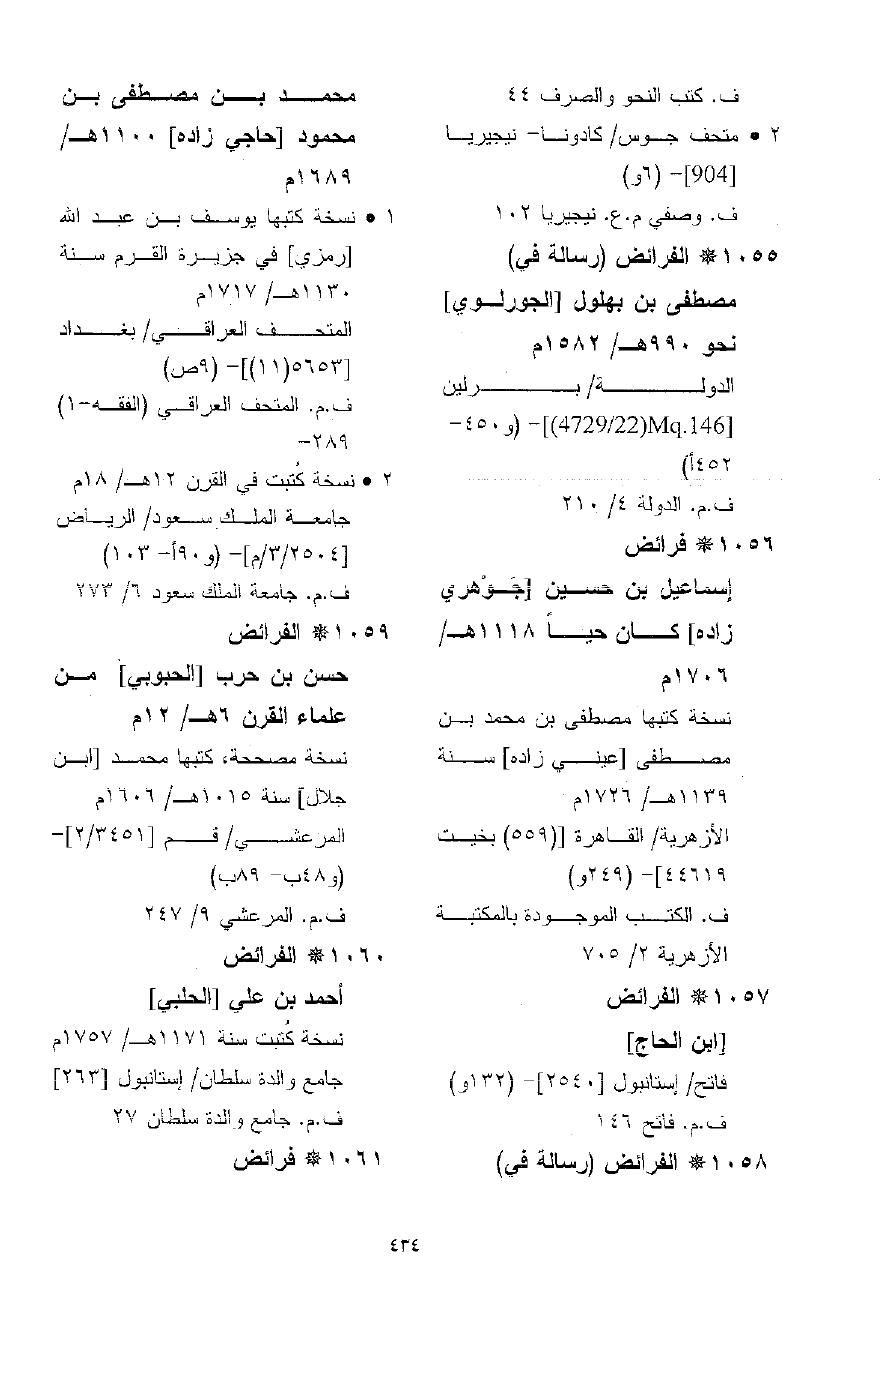 ف. كتب النحو والصرف ٤٤
٢ • متحف جوس/ كادونا- نيجيريا
[904]- (٦و)
ف. وصفي م.ع. نيجيريا ١٠٢
١٠٥٥* الفرائض (رسالة في)
مصطفى بن بهلول [الجورلوي]
نحو ٩٩٠هـ/ ١٥٨٢م
الدولة/ برلين
[Mq.146(4729/22)]- (و٤٥٠-
٤٥٢أ)
ف.م. الدولة ٤/ ٢١٠
١٠٥٦* فرائض
إسماعيل بن حسين [جَوْهري
زاده] كان حياً ١١١٨هـ/
١٧٠٦م
نسخة كتبها مصطفى بن محمد بن
مصطفى [عيني زاده] سنة
١١٣٩هـ/ ١٧٢٦م
الأزهرية/ القاهرة [(٥٥٩) بخيت
٤٤٦١٩]- (٢٤٩و)
ف. الكتب الموجودة بالمكتبة
الأزهرية ٢/ ٧٠٥
١٠٥٧* الفرائض
[ابن الحاج]
فاتح/ إستانبول [٢٥٤٠]- (١٣٢و)
ف.م. فاتح ١٤٦
١٠٥٨* الفرائض (رسالة في)
محمد بن مصطفى بن
محمود [حاجي زاده] ١١٠٠هـ/
١٦٨٩م
١ • نسخة كتبها يوسف بن عبد الله
[رمزي] في جزيرة القرم سنة
١١٣٠هـ/ ١٧١٧م
المتحف العراقي/ بغداد
[٥٦٥٣(١١)]- (٩ص)
ف.م. المتحف العراقي (الفقه-١)
٢٨٩-
٢ • نسخة كُتبت في القرن ١٢هـ/ ١٨م
جامعة الملك سعود/ الرياض
[٢٥٠٤/٣/م]- (و٩٠أ- ١٠٣)
ف.م. جامعة الملك سعود ٦/ ٢٧٣
١٠٥٩* الفرائض
حسن بن حرب [الحبوبي] من
علماء القرن ٦هـ/ ١٢م
نسخة مصححة، كتبها محمد [ابن
جلال] سنة ١٠١٥هـ/ ١٦٠٦م
المرعشي/ قم [٢/٣٤٥١]-
(و٤٨ب- ٨٩ب)
ف.م. المرعشي ٩/ ٢٤٧
١٠٦٠* الفرائض
أحمد بن علي [الحلبي]
نسخة كُتبت سنة ١١٧١هـ/ ١٧٥٧م
جامع والدة سلطان/ إستانبول [٢٦٣]
ف.م. جامع والدة سلطان ٢٧
١٠٦١* فرائض
٤٣٤